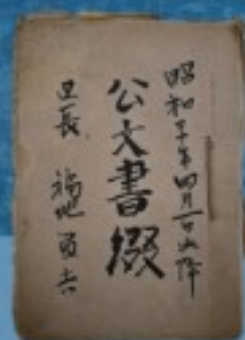 昭和二十年四月一日以降
公文書綴
区長 福地百吉